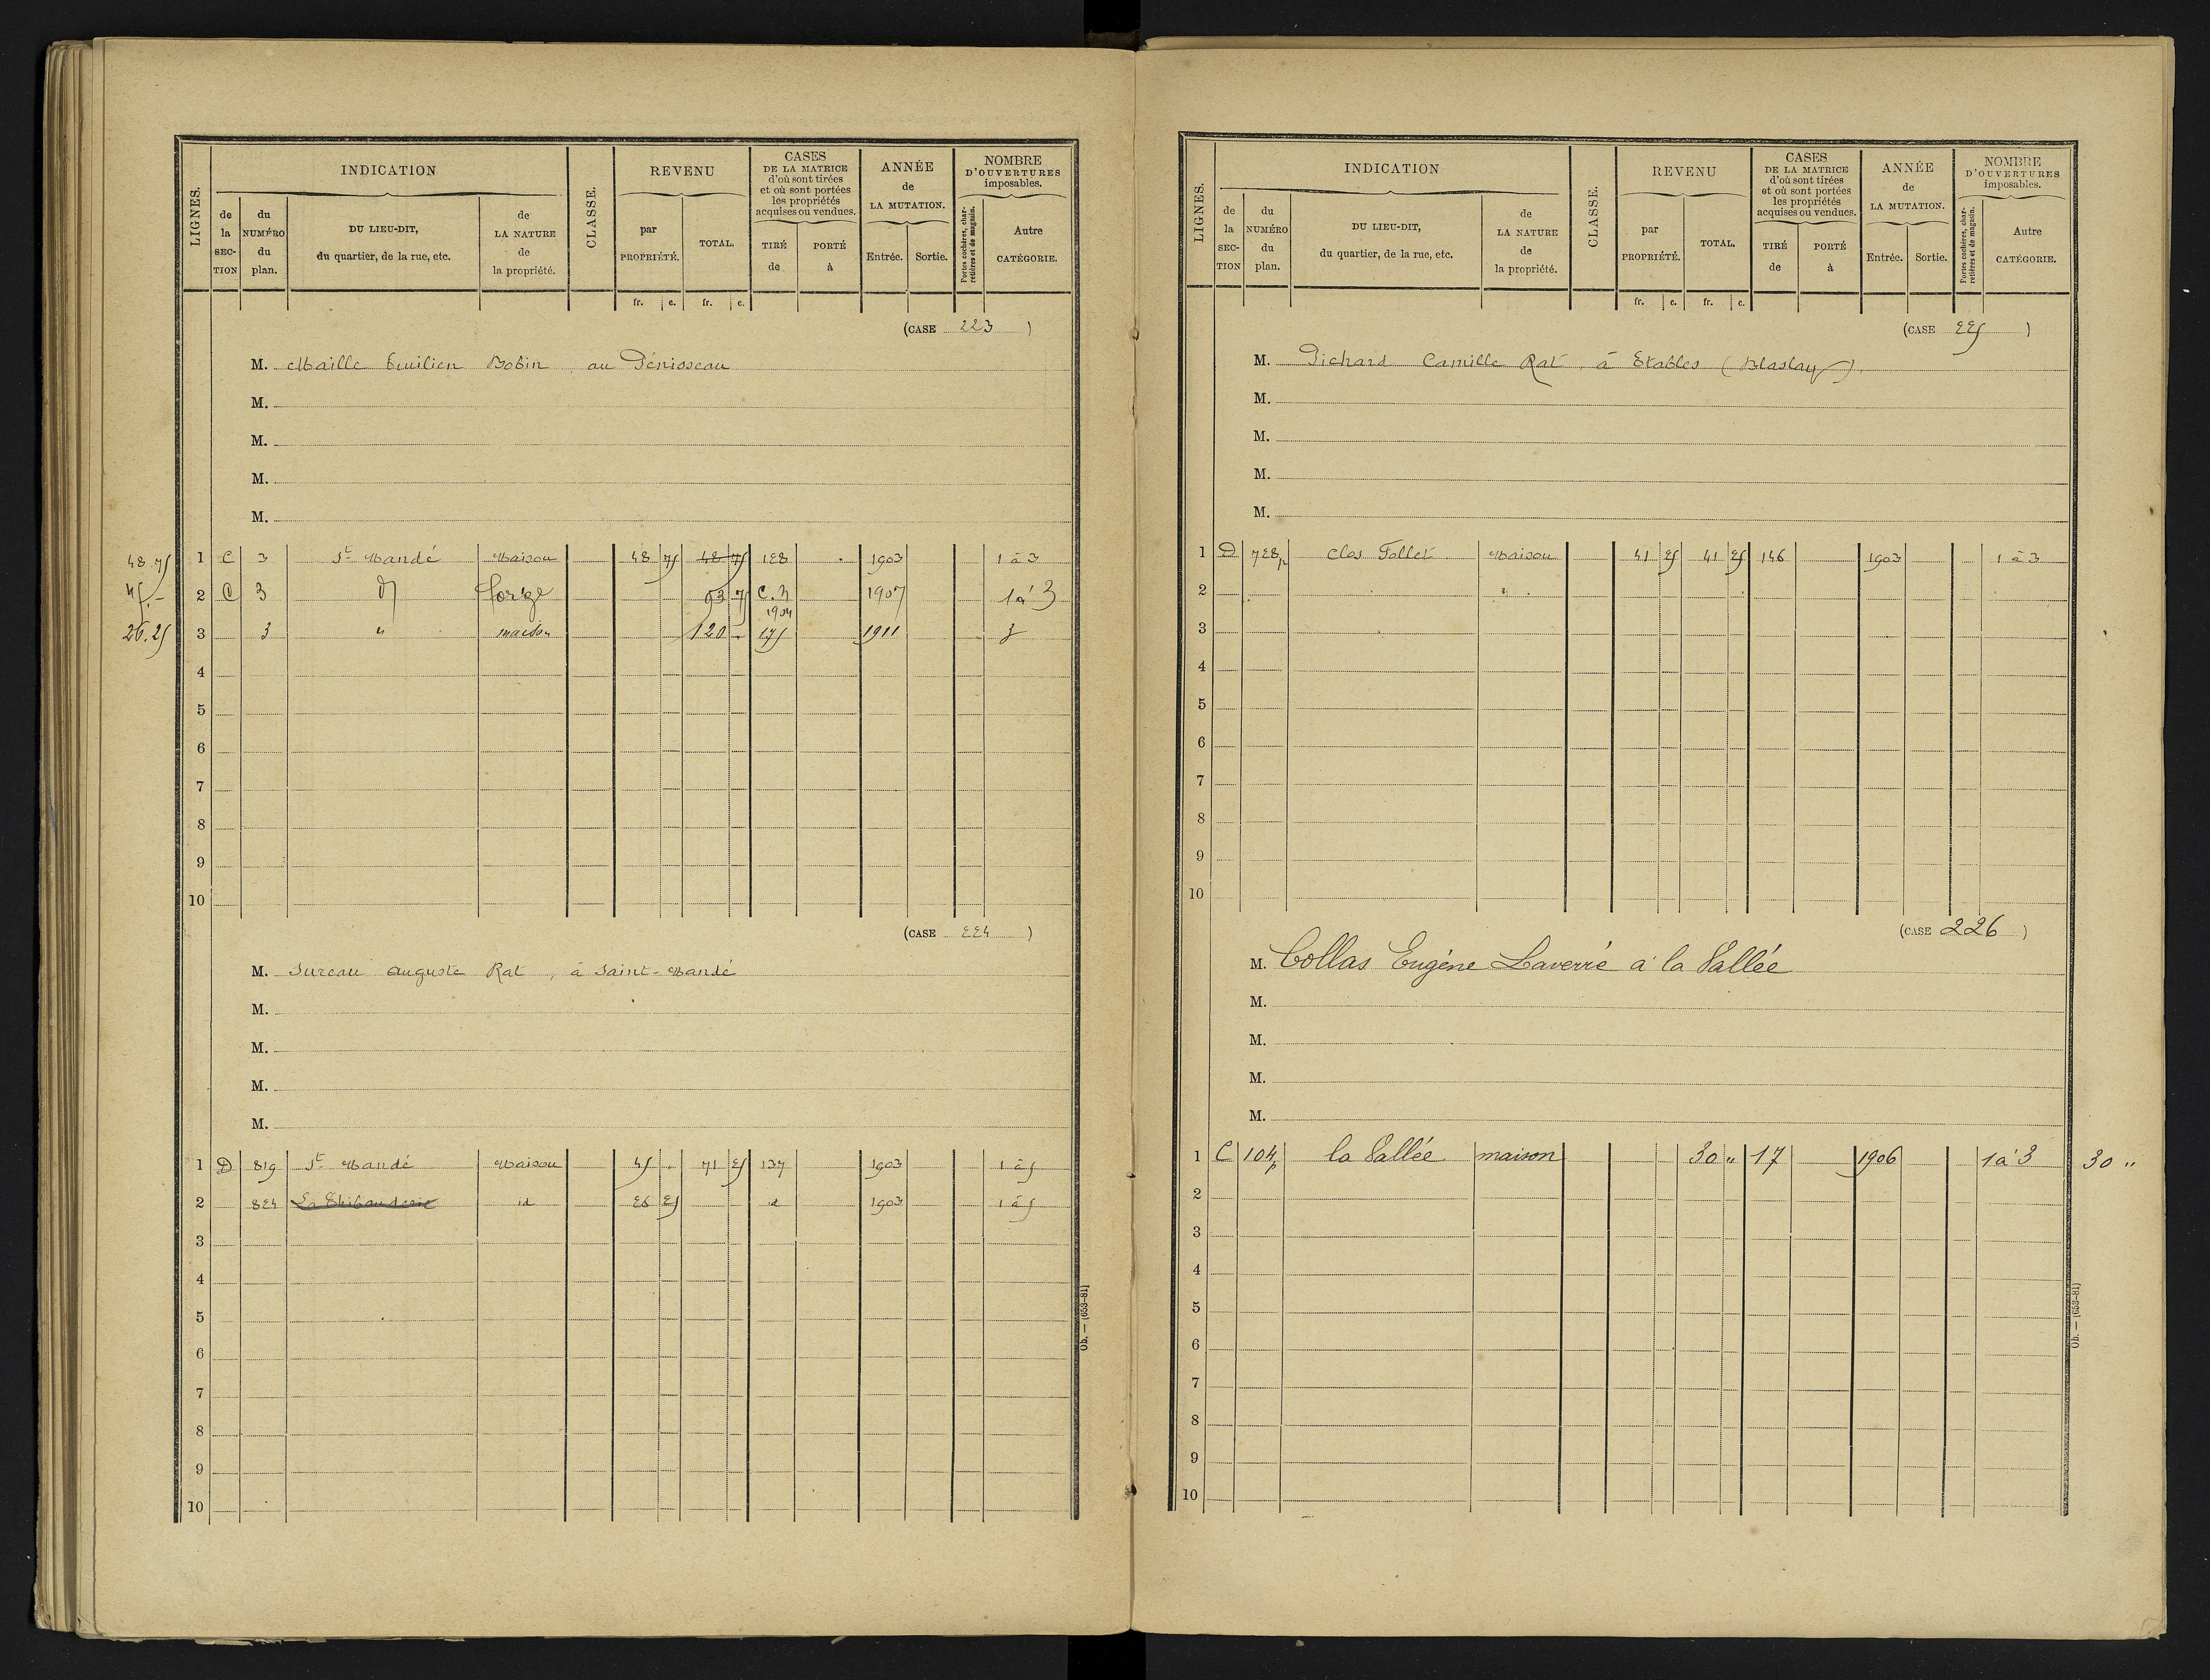 LIGNES.
INDICATION
de la SECTION
du NUMÉRO du plan.
DU LIEU-DIT, du quartier, de la rue, etc.
de LA NATURE de la propriété.
CLASSE.
REVENU
par PROPRIÉTÉ.
TOTAL.
CASES DE LA MATRICE d'où sont tirées et où sont portées les propriétés acquises ou vendues.
TIRÉ de
PORTÉ à
ANNÉE de LA MUTATION.
Entrée.
Sortie.
NOMBRE D'OUVERTURES imposables.
Portes cochères, charretières et de magasin.
Autre CATÉGORIE.
fr. c. fr. c.
(CASE 223 )
M. Maille Emilien Bobin au Pénisseau
M.
M.
M.
M.
48.75 1 C 3 St Mandé Maison 48 75 48 75 128 1903 1 à 3
45.- 2 C 3 d Forge 93 75 C. N 1904 1907 1 à 3
26.25 3 3 " maison 120 - 175 1911 3
4
5
6
7
8
9
10
(CASE 224 )
M. Sureau Auguste Rat, à Saint-Mandé
M.
M.
M.
M.
1 D 819 St Mandé Maison 45 . 71 25 137 1903 1 à 5
2 824 La Thibauderie id 26 25 id 1903 1 à 5
3
4
5
6
7
8
9
10
Ob. — (653-81)
LIGNES.
INDICATION
de la SECTION
du NUMÉRO du plan.
DU LIEU-DIT, du quartier, de la rue, etc.
de LA NATURE de la propriété.
CLASSE.
REVENU
par PROPRIÉTÉ.
TOTAL.
CASES DE LA MATRICE d'où sont tirées et où sont portées les propriétés acquises ou vendues.
TIRÉ de
PORTÉ à
ANNÉE de LA MUTATION.
Entrée.
Sortie.
NOMBRE D'OUVERTURES imposables.
Portes cochères, charretières et de magasin.
Autre CATÉGORIE.
fr. c. fr. c.
(CASE 225 )
M. Pichard Camille Rat, à Etables (Blaslay).
M.
M.
M.
M.
1 D 728p Clos Follet Maison 41 25 41 25 146 1903 1 à 3
2 "
3
4
5
6
7
8
9
10
(CASE 226 )
M. Collas Eugène Laverré à la Vallée
M.
M.
M.
M.
1 C 104p la Vallée maison 30 " 17 1906 1 à 3 30 "
2
3
4
5
6
7
8
9
10
Ob. — (653-81)